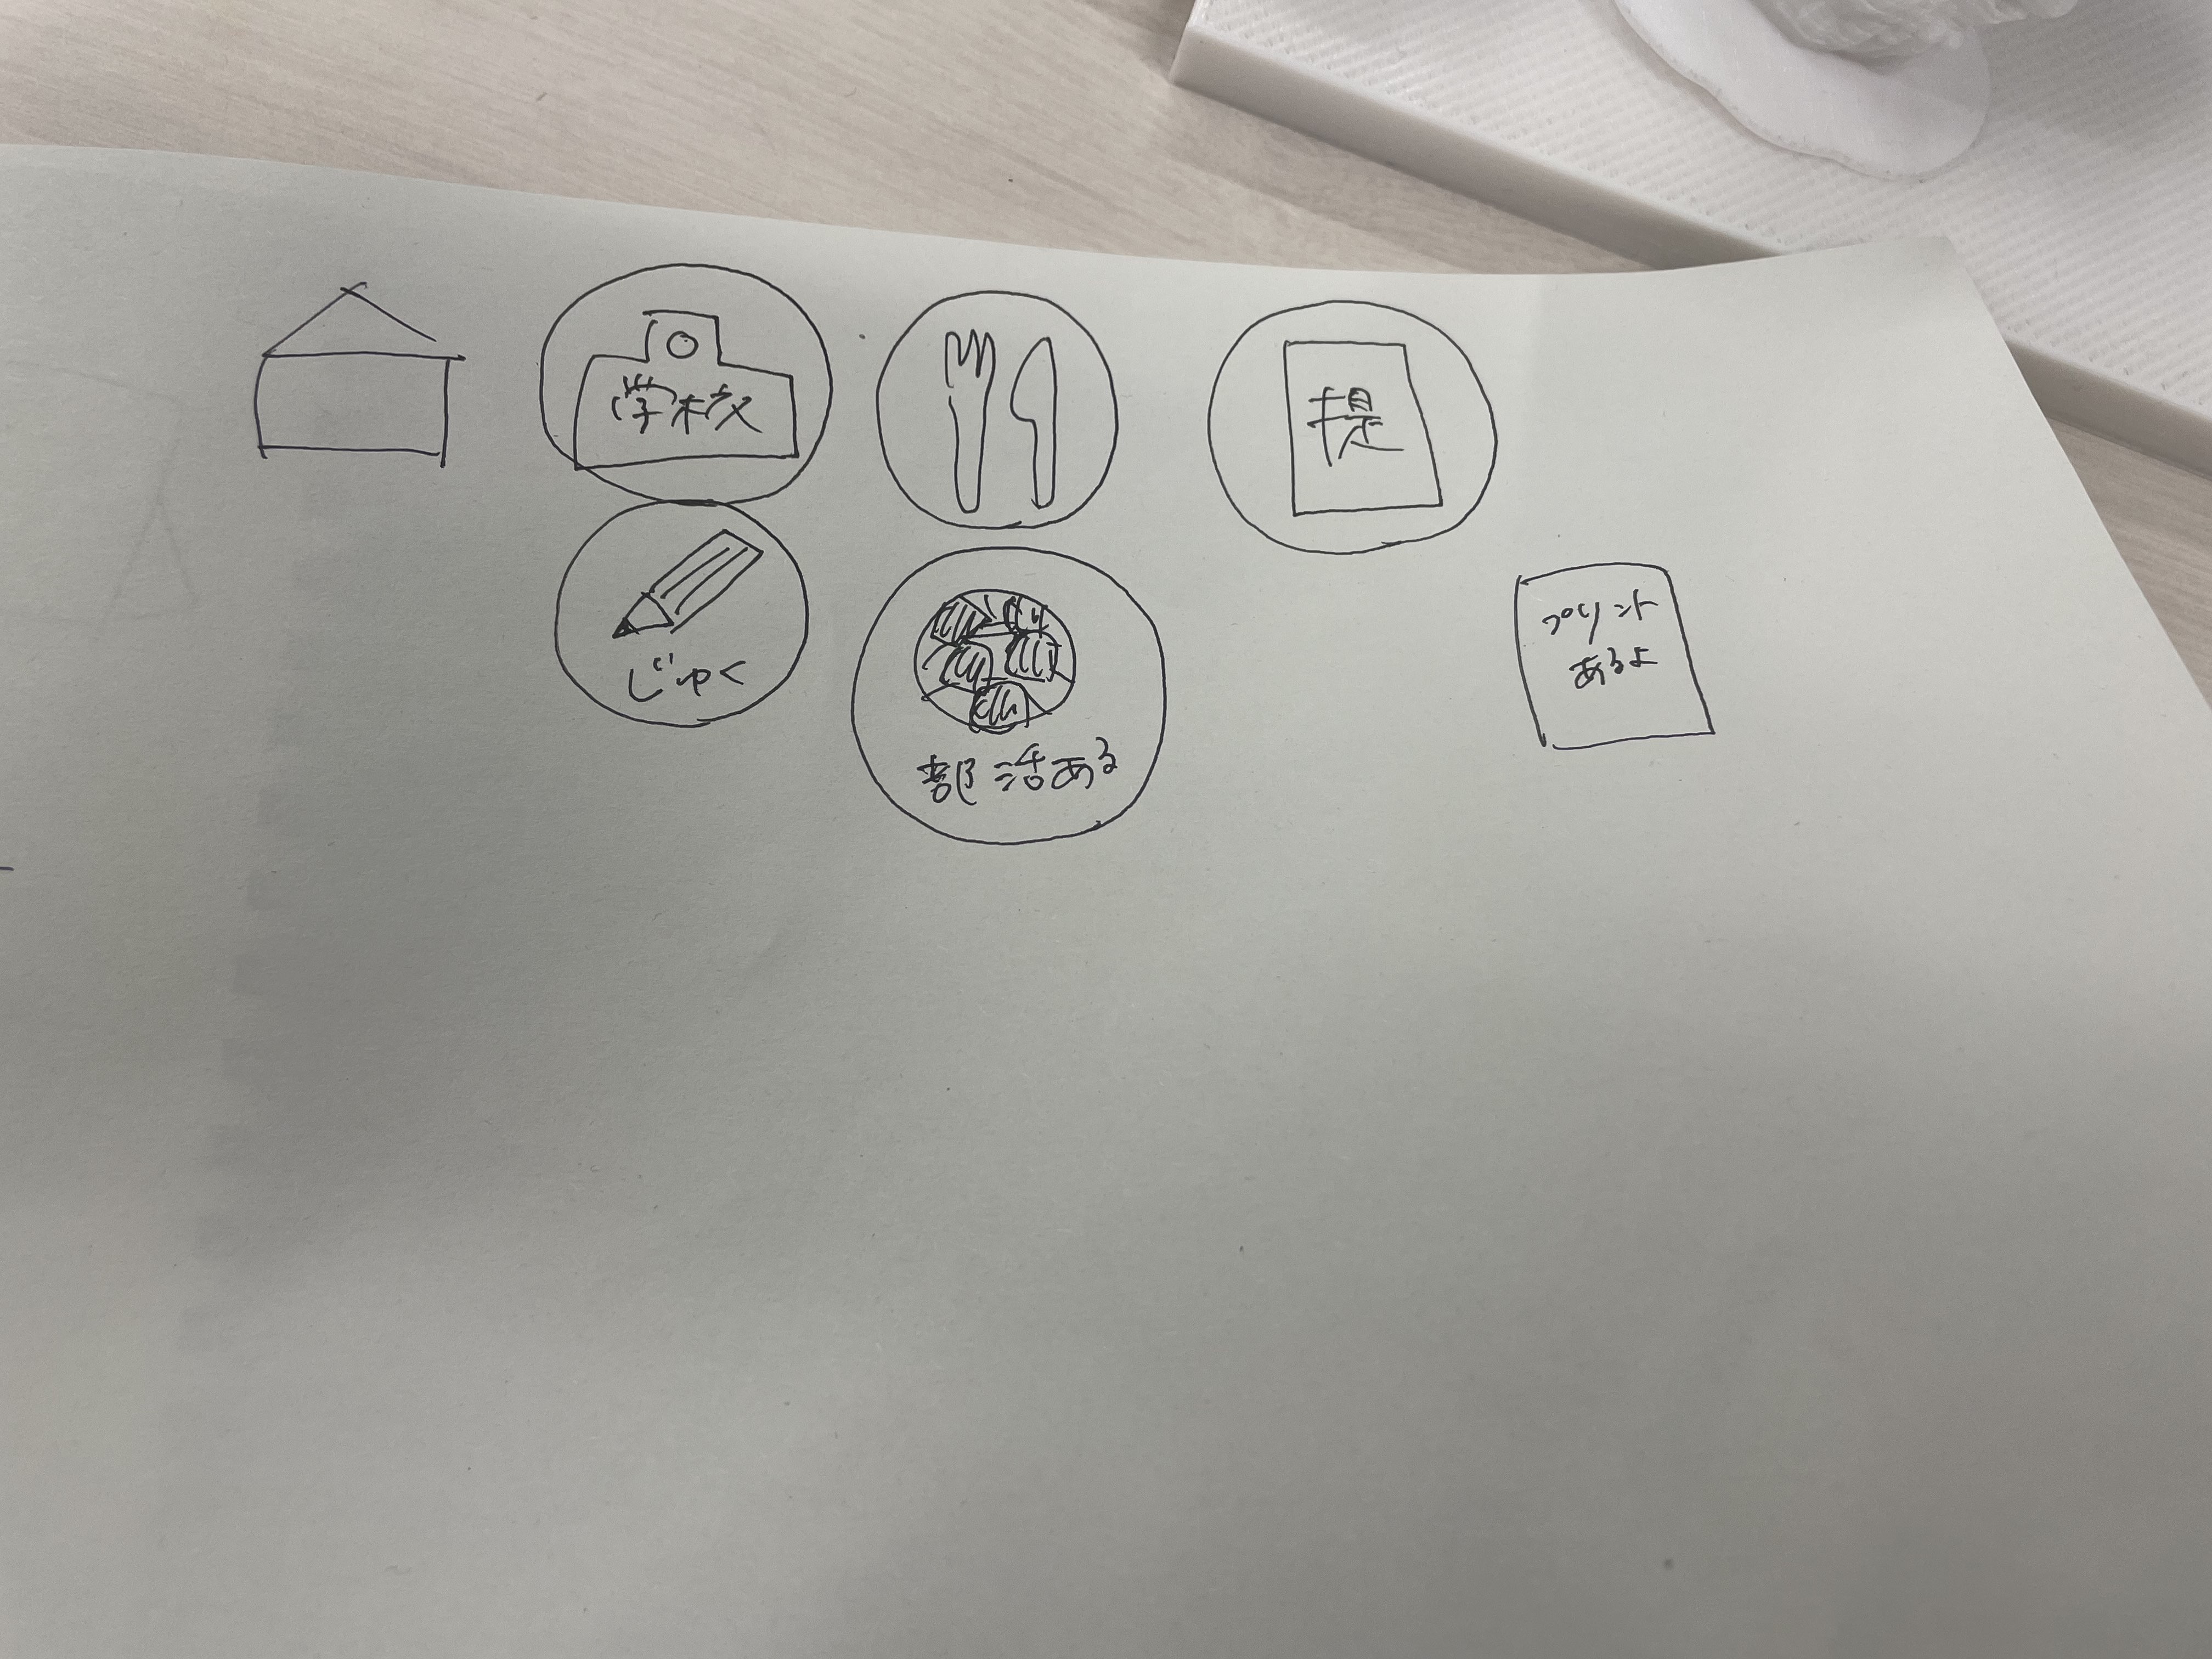 学校
提
じゅく
部活ある
プリント
あるよ